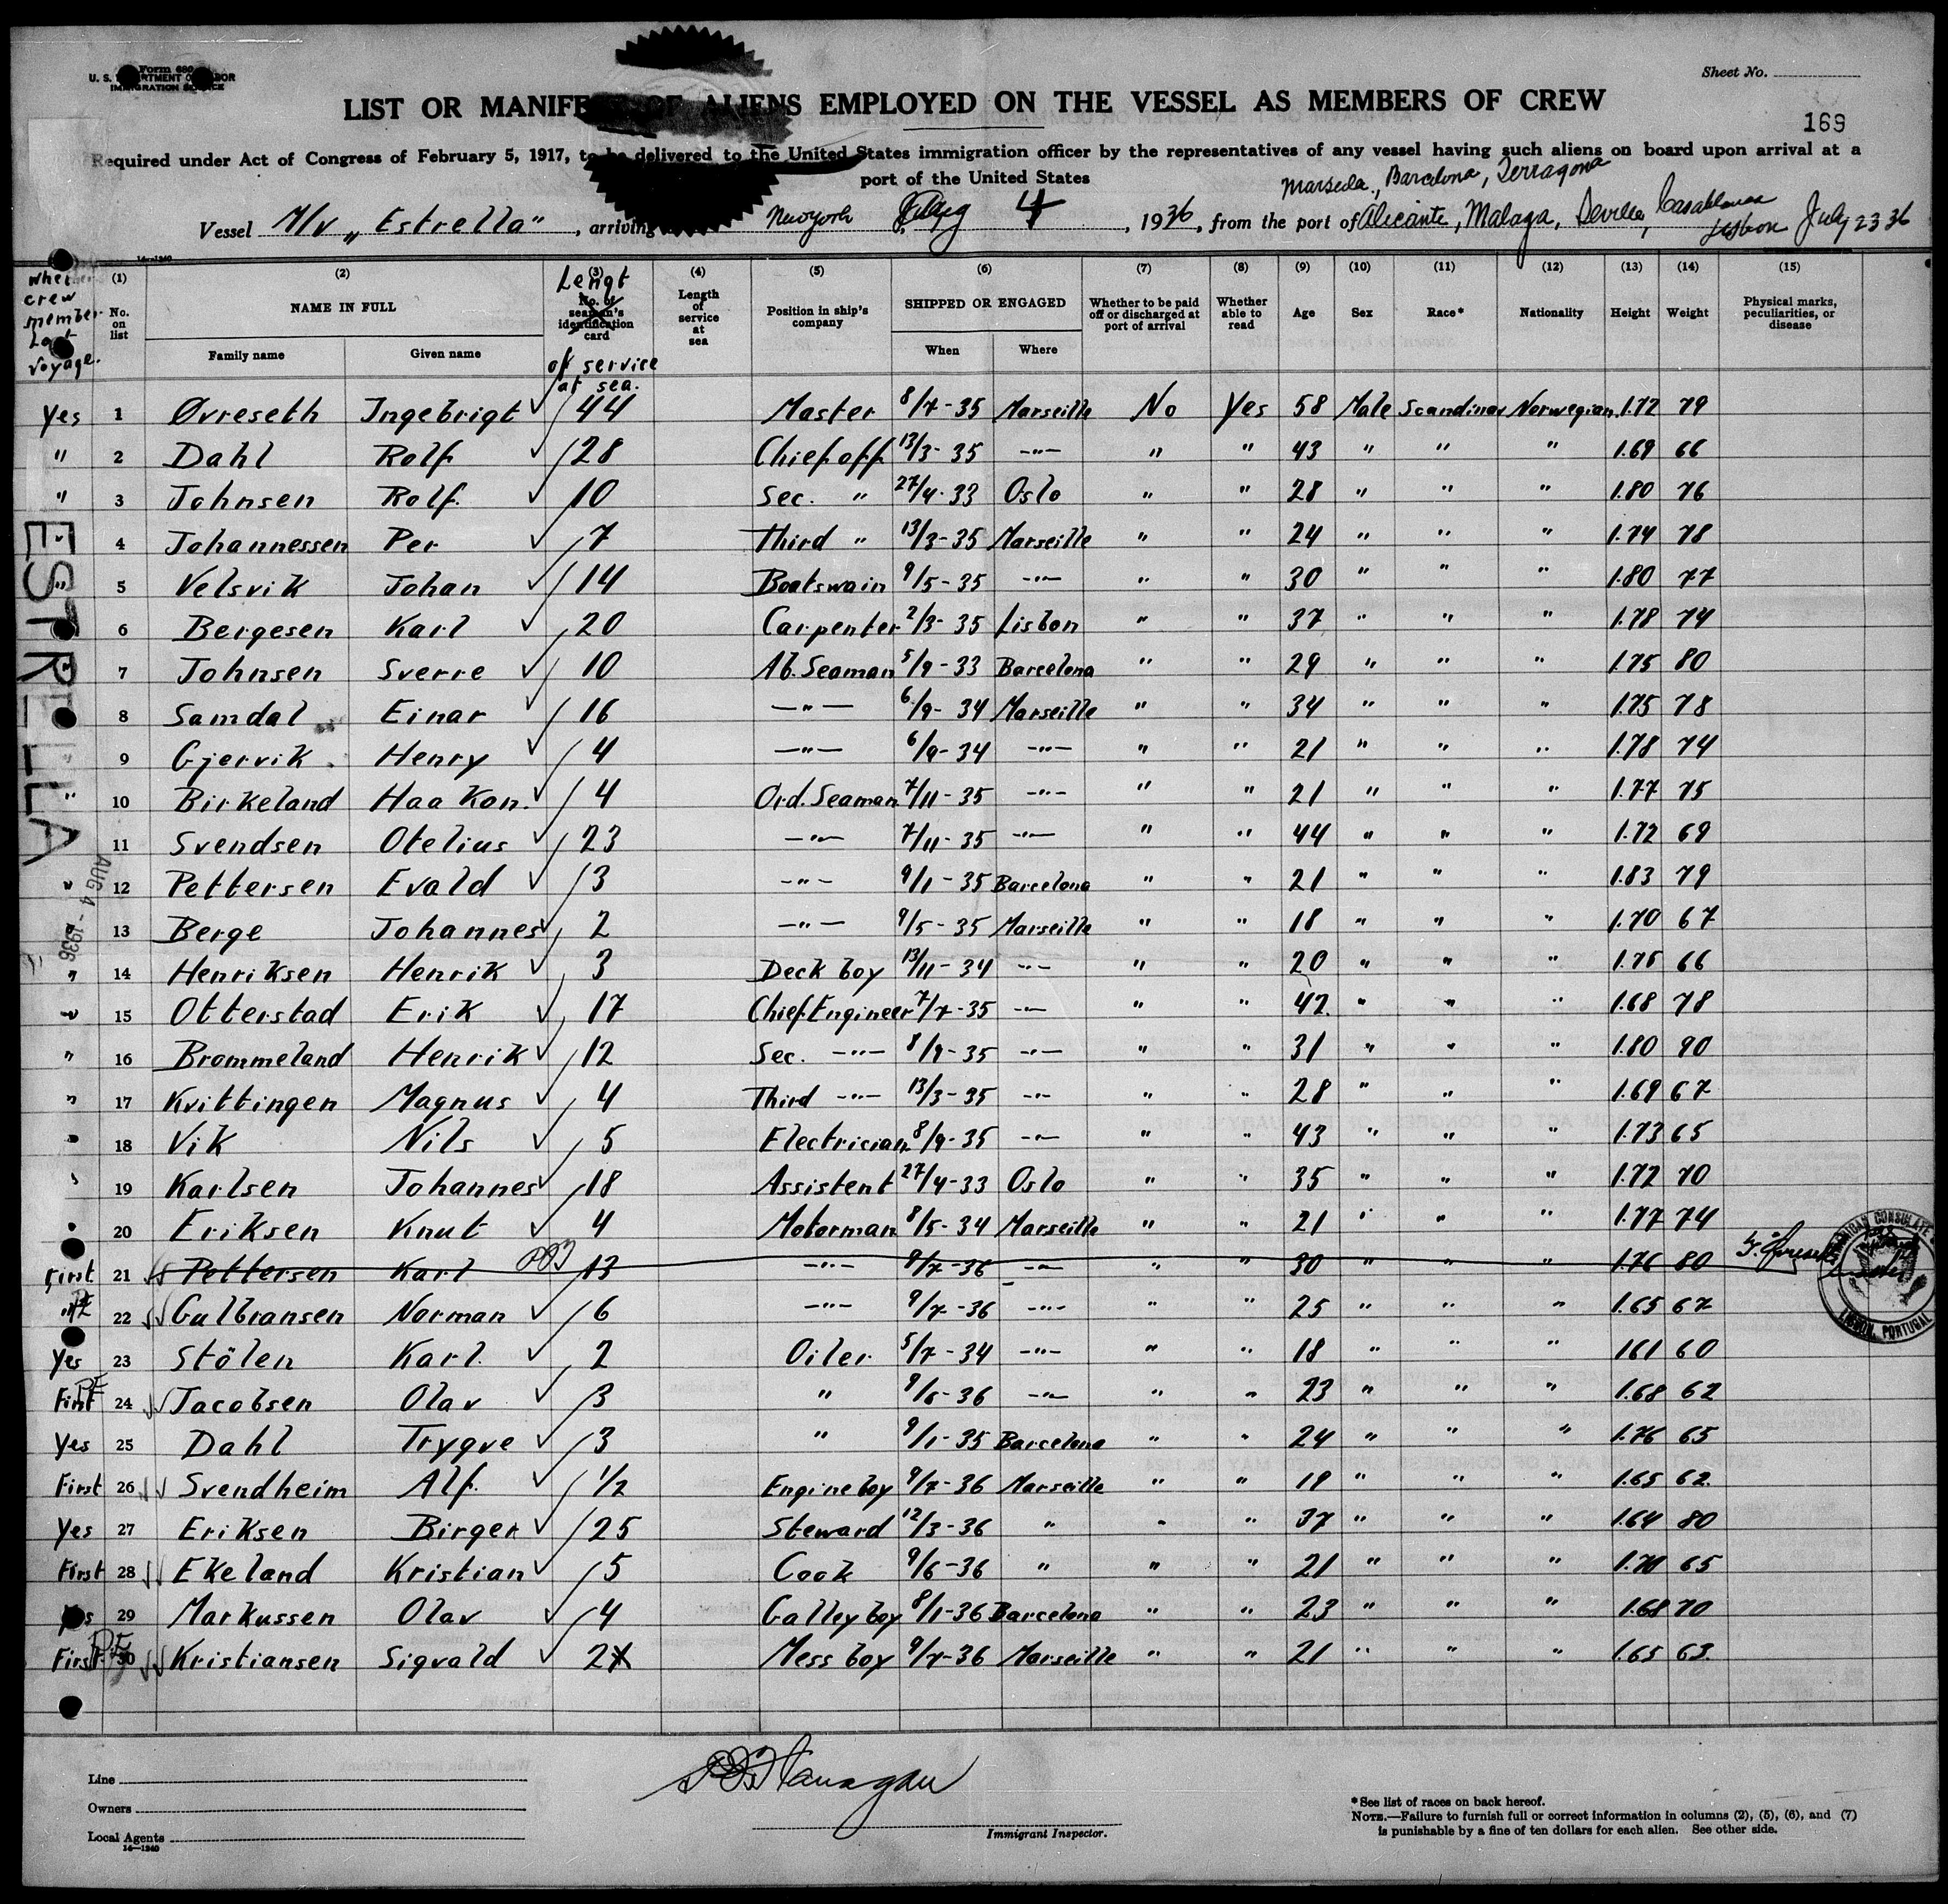 Form 680
U. S. DEPARTMENT OF LABOR
IMMIGRATION SERVICE
Sheet No.
LIST OR MANIFEST OF ALIENS EMPLOYED ON THE VESSEL AS MEMBERS OF CREW
169
Required under Act of Congress of February 5, 1917, to be delivered to the United States immigration officer by the representatives of any vessel having such aliens on board upon arrival at a
port of the United States
Marseila, Barcelona, Terragona
Vessel M/v „Estrella", arriving New york Aug 4, 1936, from the port of Alicante, Malaga, Sevilla, Casablanca
Lisbon July 23 36
Whether crew member Last voyage.
(1) No. on list
(2) NAME IN FULL Family name Given name
(3) No. of seaman's identification card
Lengt of service at sea.
(4) Length of service at sea
(5) Position in ship's company
(6) SHIPPED OR ENGAGED When Where
(7) Whether to be paid off or discharged at port of arrival
(8) Whether able to read
(9) Age
(10) Sex
(11) Race*
(12) Nationality
(13) Height
(14) Weight
(15) Physical marks, peculiarities, or disease
Yes 1 Øvreseth Ingebrigt 44 Master 8/7-35 Marseille No Yes 58 Male Scandinav Norwegian 1.72 79
" 2 Dahl Rolf 28 Chief off 13/3-35 -"- " " 43 " " " 1.69 66
" 3 Johnsen Rolf. 10 Sec. " 27/4-33 Oslo " " 28 " " " 1.80 76
" 4 Johannessen Per 7 Third " 13/3-35 Marseille " " 24 " " " 1.74 78
" 5 Velsvik Johan 14 Boatswain 9/5-35 -"- " " 30 " " " 1.80 77
6 Bergesen Karl 20 Carpenter 2/3-35 Lisbon " " 37 " " " 1.78 74
" 7 Johnsen Sverre 10 Ab. Seaman 5/9-33 Barcelona " " 29 " " " 1.75 80
8 Samdal Einar 16 -"- 6/9-34 Marseille " " 34 " " " 1.75 78
9 Gjervik Henry 4 -"- 6/9-34 -"- " " 21 " " " 1.78 74
" 10 Birkeland Haakon. 4 Ord. Seaman 7/11-35 -"- " " 21 " " " 1.77 75
11 Svendsen Otelius 23 -"- 7/11-35 -"- " " 44 " " " 1.72 69
" 12 Pettersen Evald 3 -"- 9/1-35 Barcelona " " 21 " " " 1.83 79
" 13 Berge Johannes 2 -"- 9/5-35 Marseille " " 18 " " " 1.70 67
" 14 Henriksen Henrik 3 Deck boy 13/11-34 -"- " " 20 " " " 1.75 66
" 15 Otterstad Erik 17 Chief Engineer 7/7-35 -"- " " 42. " " " 1.68 78
" 16 Brommeland Henrik 12 Sec. -"- 8/9-35 -"- " " 31 " " " 1.80 90
" 17 Kvittingen Magnus 4 Third -"- 13/3-35 -"- " " 28 " " " 1.69 67
" 18 Vik Nils 5 Electrician 8/9-35 -"- " " 43 " " " 1.73 65
" 19 Karlsen Johannes 18 Assistent 27/4-33 Oslo " " 35 " " " 1.72 70
" 20 Eriksen Knut 4 Motorman 8/5-34 Marseille " " 21 " " " 1.77 74
First 21 Pettersen Karl 13 -"- 9/7-36 -"- " " 30 " " " 1.76 80
" 22 Gulbransen Norman 6 -"- 9/7-36 -"- " " 25 " " " 1.65 67
Yes 23 Stölen Karl. 2 Oiler 5/7-34 -"- " " 18 " " " 161 60
First 24 Jacobsen Olav 3 " 9/6-36 -"- " " 23 " " " 1.68 62
Yes 25 Dahl Trygve 3 " 9/1-35 Barcelona " " 24 " " " 1.76 65
First 26 Svendheim Alf. 1/2 Engine boy 9/7-36 Marseille " " 19 " " " 1.65 62.
Yes 27 Eriksen Birger 25 Steward 12/3-36 " " " 37 " " " 1.64 80
First 28 Ekeland Kristian 5 Cook 9/6-36 " " " 21 " " " 1.70 65
Yes 29 Markussen Olav 4 Galley boy 8/1-36 Barcelona " " 23 " " " 1.68 70
First 30 Kristiansen Sigvald 2 Mess boy 9/7-36 Marseille " " 21 " " " 1.65 63.
ESTRELLA
AUG 4 - 1936
AMERICAN CONSULATE
LISBON, PORTUGAL
Line
Owners
Local Agents
14—1240
Flanagan
Immigrant Inspector.
*See list of races on back hereof.
NOTE.—Failure to furnish full or correct information in columns (2), (5), (6), and (7)
is punishable by a fine of ten dollars for each alien. See other side.